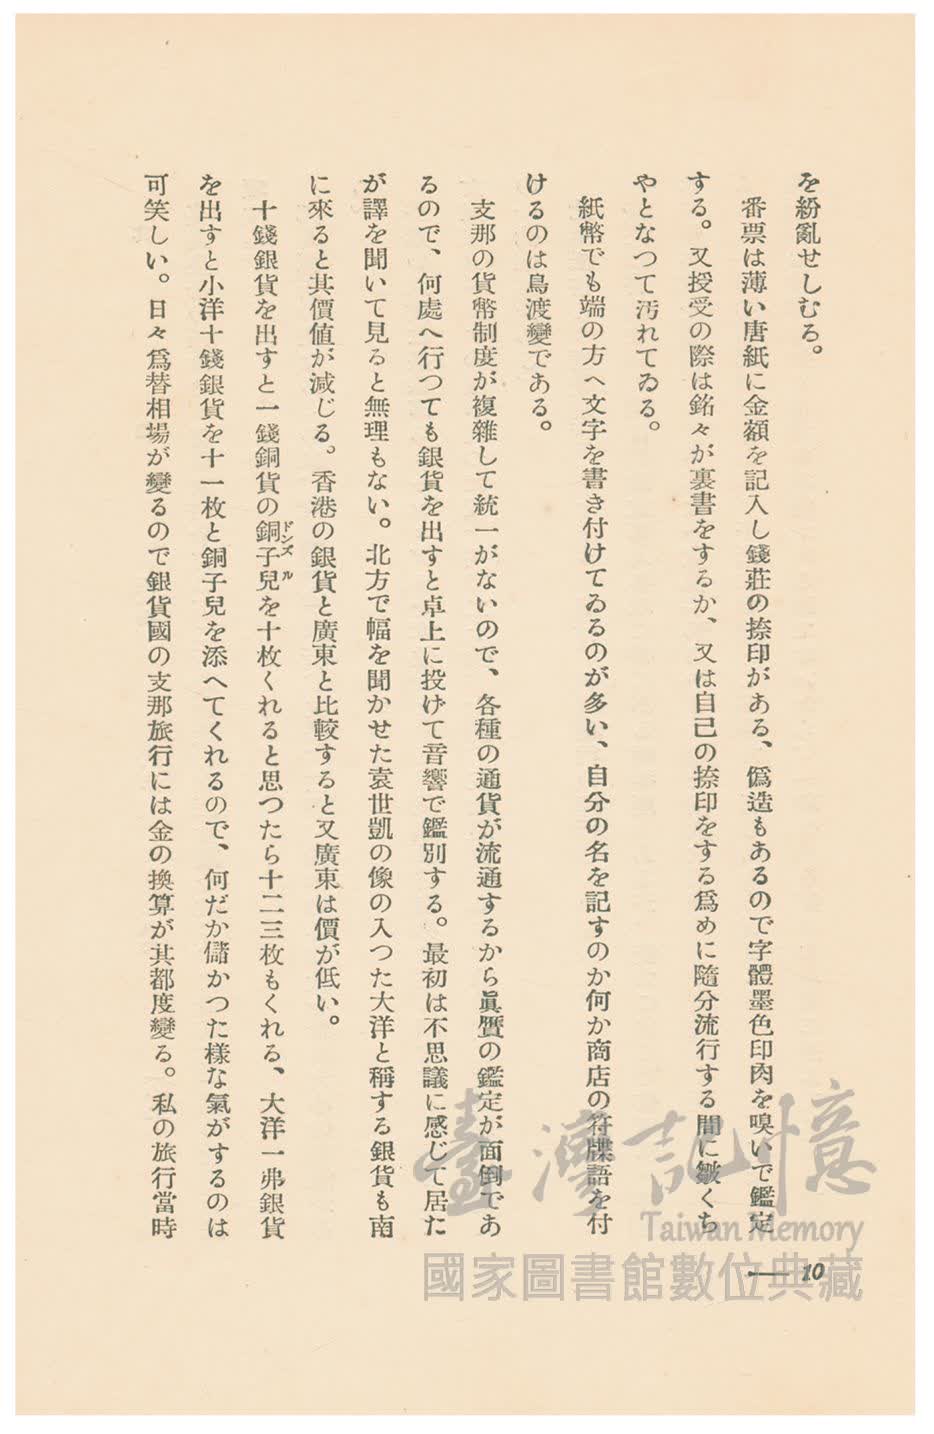 を紛亂せしむる。
番票は薄い唐紙に金額を記入し錢莊の捺印がある、僞造もあるので字體墨色印肉を嗅いで鑑定
する。又授受の際は銘々が裏書をするか、又は自己の捺印をする爲めに隨分流行する間に皺くち
やとなつて汚れてゐる。
紙幣でも端の方へ文字を書き付けてゐるのが多い、自分の名を記すのか何か商店の符牒語を付
けるのは鳥渡變である。
支那の貨幣制度が複雜して統一がないので、各種の通貨が流通するから眞贋の鑑定が面倒であ
るので、何處へ行つても銀貨を出すと卓上に投げて音響で鑑別する。最初は不思議に感じて居た
が譯を聞いて見ると無理もない。北方で幅を聞かせた袁世凱の像の入つた大洋と稱する銀貨も南
に來ると其價値が減じる。香港の銀貨と廣東と比較すると又廣東は價が低い。
十錢銀貨を出すと一錢銅貨の銅子兒を十枚くれると思つたら十二三枚もくれる、大洋一弗銀貨
ドンズル
を出すと小洋十錢銀貨を十一枚と銅子兒を添へてくれるので、何だか儲かつた樣な氣がするのは
可笑しい。日々爲替相場が變るので銀貨國の支那旅行には金の換算が其都度變る。私の旅行當時
10
臺灣記憶
Taiwan Memory
國家圖書館數位典藏